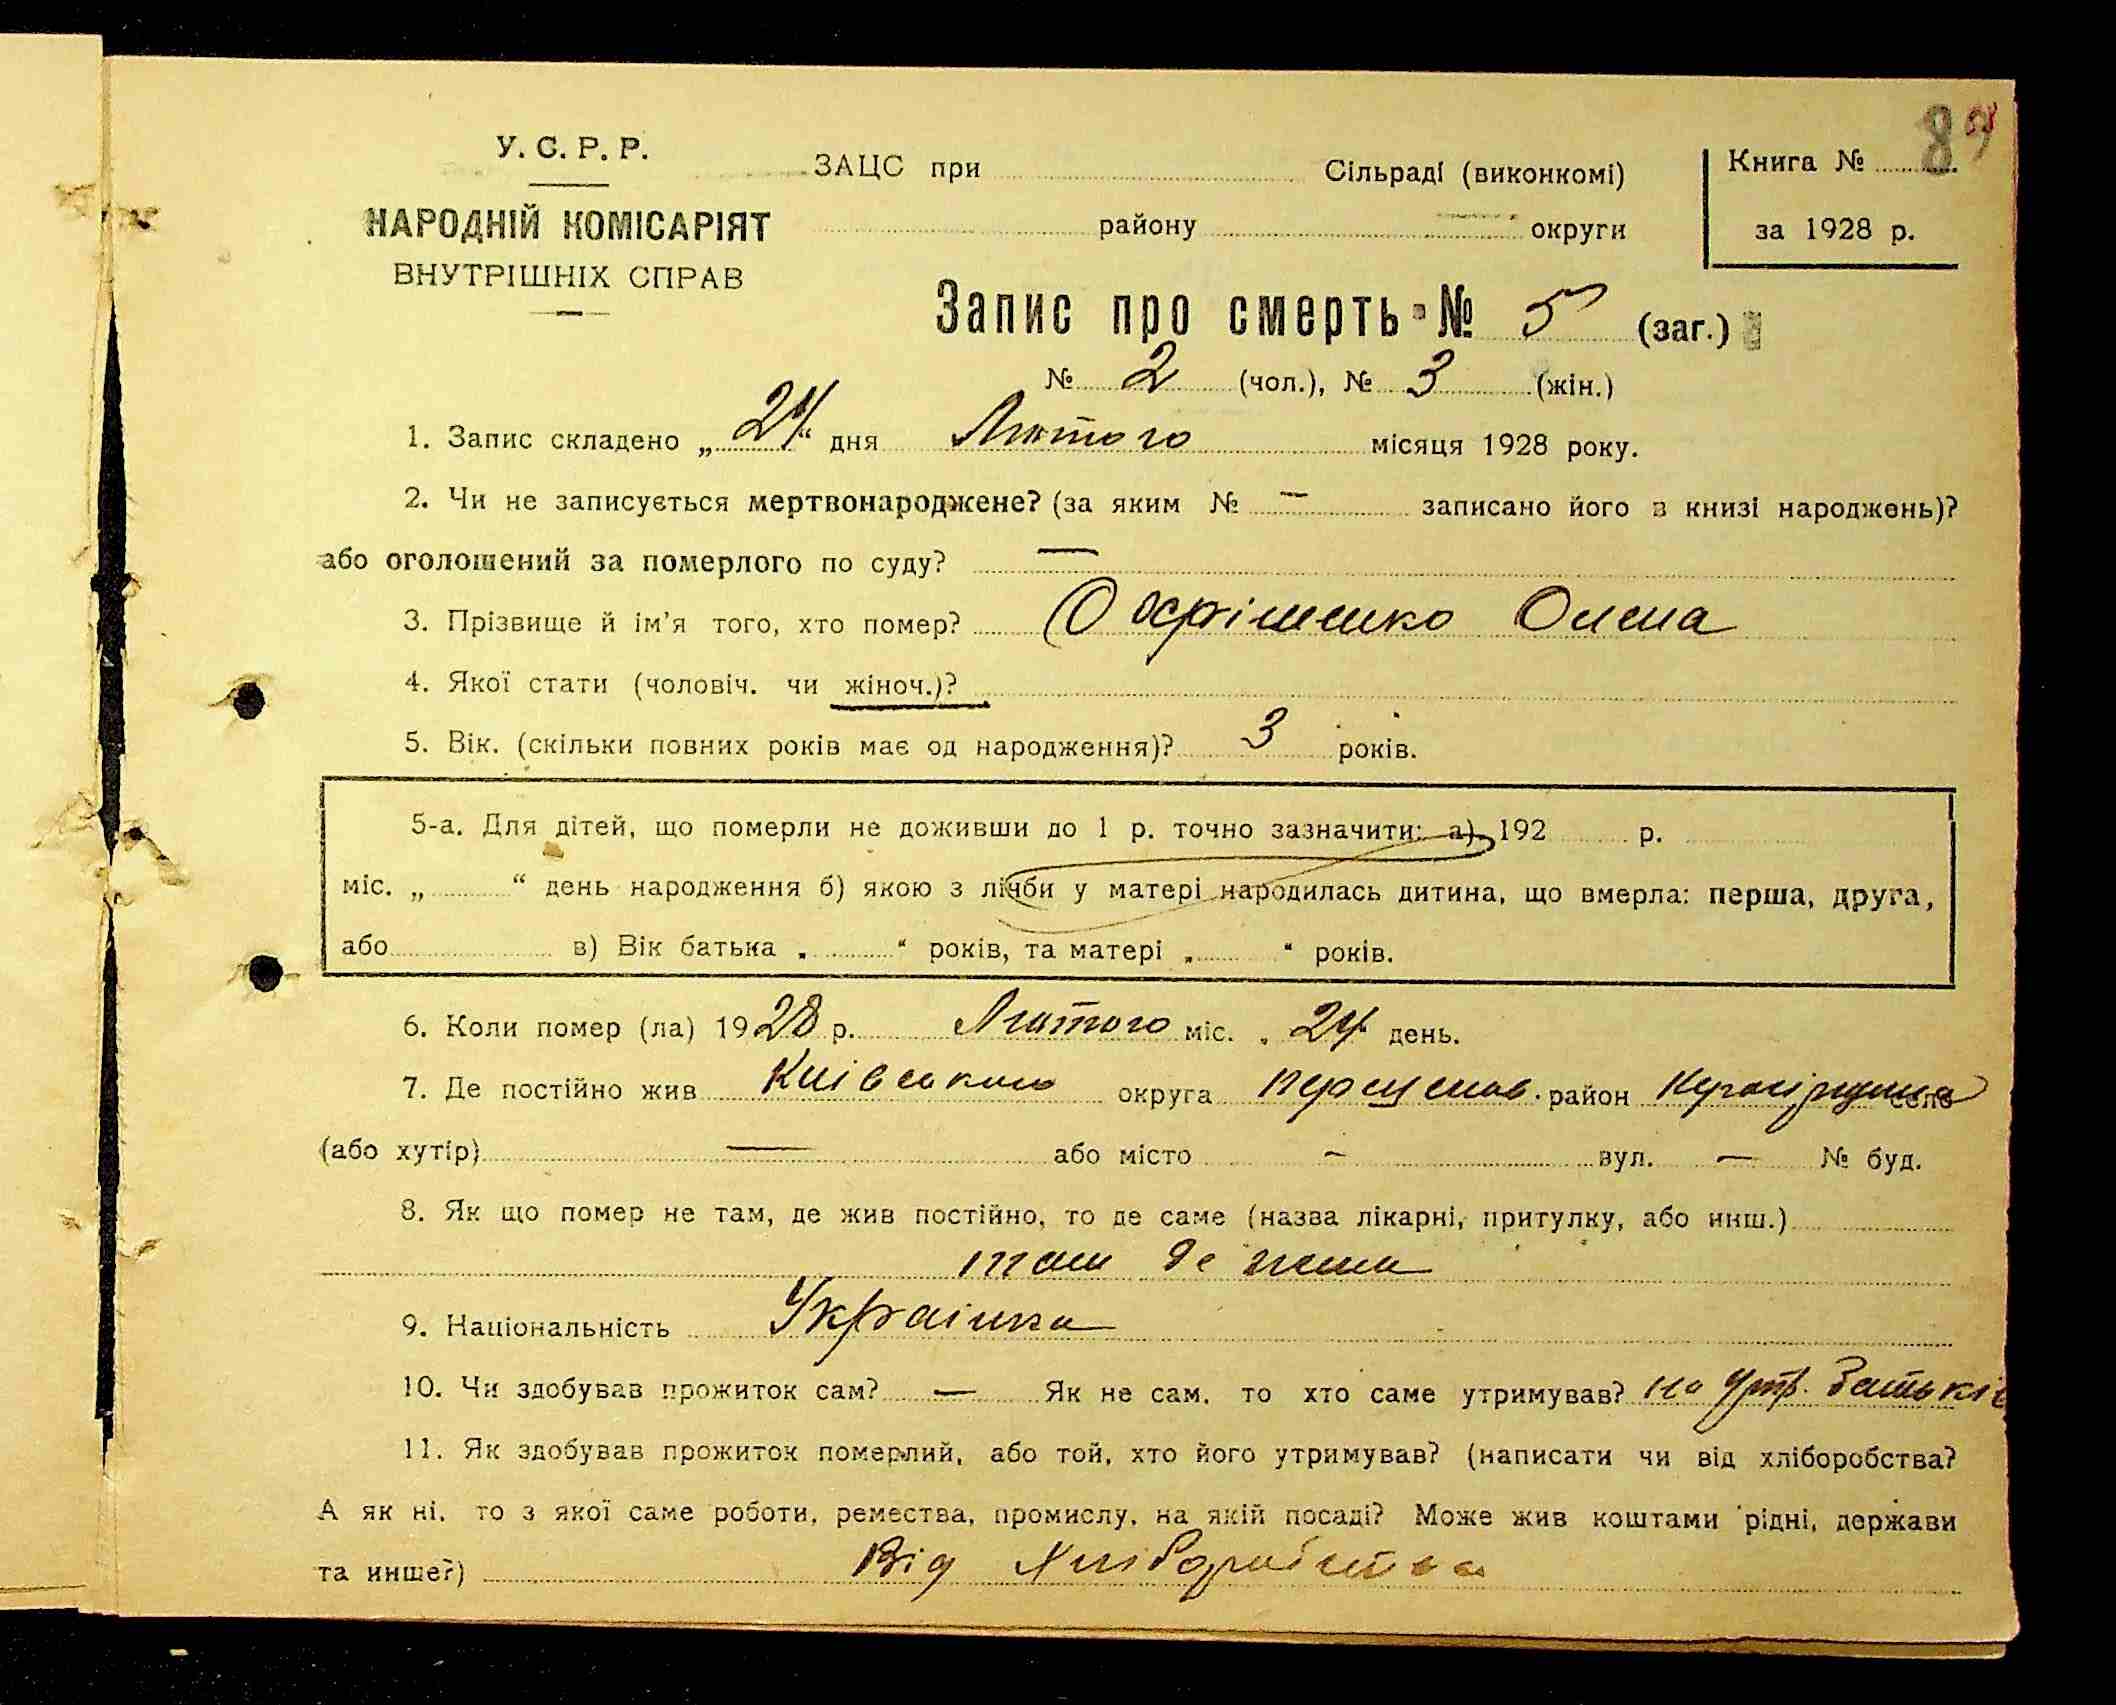 У. С. Р. Р.
НАРОДНІЙ КОМІСАРІЯТ
ВНУТРІШНІХ СПРАВ
ЗАЦС при Сільраді (виконкомі)
району округи
Книга №
за 1928 р.
Запис про смерть № 5 (заг.)
№ 2 (чол.), № 3 (жін.)
1. Запис складено „24“ дня Лютого місяця 1928 року.
2. Чи не записується мертвонароджене? (за яким № — записано його в книзі народжень)?
або оголошений за померлого по суду? —
3. Прізвище й ім'я того, хто помер? Олена
4. Якої стати (чоловіч. чи жіноч.)?
5. Вік. (скільки повних років має од народження)? 3 років.
5-а. Для дітей, що померли не доживши до 1 р. точно зазначити: а) 192 р.
міс. „ “ день народження б) якою з лічби у матері народилась дитина, що вмерла: перша, друга,
або в) Вік батька „ “ років, та матері „ “ років.
6. Коли помер (ла) 1928 р. Лютого міс. „ 24 день.
7. Де постійно жив Київського округа район село
(або хутір) — або місто - вул. — № буд.
8. Як що помер не там, де жив постійно, то де саме (назва лікарні, притулку, або инш.)
там де жила
9. Національність Українка
10. Чи здобував прожиток сам? — Як не сам, то хто саме утримував? на утр. Батьків
11. Як здобував прожиток померлий, або той, хто його утримував? (написати чи від хліборобства?
А як ні, то з якої саме роботи, ремества, промислу, на якій посаді? Може жив коштами рідні, держави
та инше?) Від Хліборобства